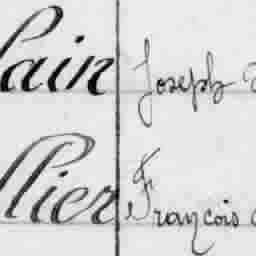 lain Joseph
llier François